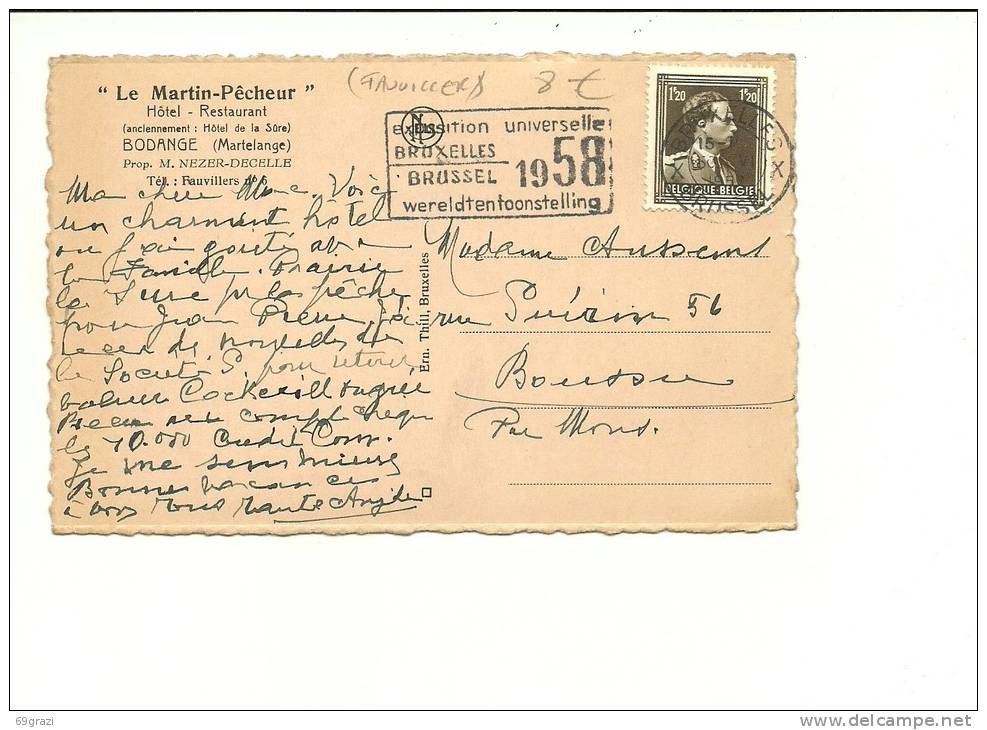 " Le Martin-Pêcheur "
Hôtel - Restaurant
(anciennement : Hôtel de la Sûre)
BODANGE (Martelange)
Prop. M. NEZER-DECELLE
Tél. : Fauvillers n° 6
(FAUVILLERS) 8 €
exposition universelle
BRUXELLES
BRUSSEL
1958
wereldtentoonstelling
1F20 1F20
BELGIQUE-BELGIE
BRUXELLES X
15
BRUSSEL X
Ma chère Voici
un charmant hôtel
ou j'ai goûté
la famille. Prairie
la Sure pr la pêche
pour Jean Pierre, j'ai
de nouvelles de
la Société pour retirer
Cockerill Ougrée
compte
les 10.000 Credit Com.
Je me sens mieux
Bonnes vacances
à vous tous
Ern. Thill, Bruxelles
Madame
rue 56
Boussu
Par Mons.
69grazi
www.delcampe.net